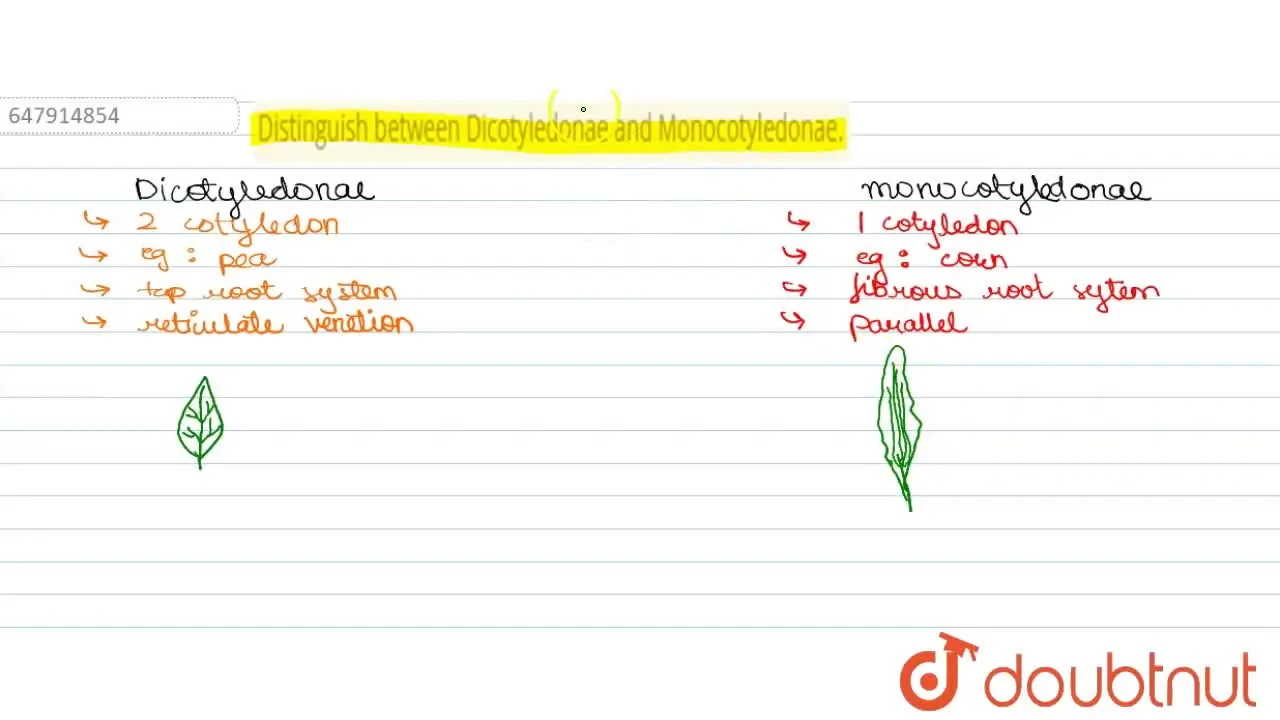 647914854
Distinguish between Dicotyledonae and Monocotyledonae.
Dicotyledonae
↳ 2 cotyledon
↳ eg : pea
↳ tap root system
↳ reticulate venation
monocotyledonae
↳ 1 cotyledon
↳ eg : corn
↳ fibrous root sytem
↳ parallel
doubtnut